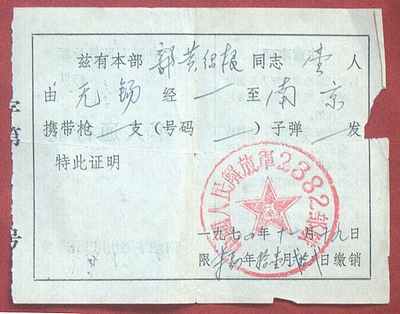 兹有本部 郭黄绍根 同志 壹 人
由 无锡 经 — 至 南京
携带枪 — 支(号码 — )子弹 — 发
特此证明
人民解放军2382部队
一九七〇年十一月十九日
限 年 拾壹月 日缴销
字第
号